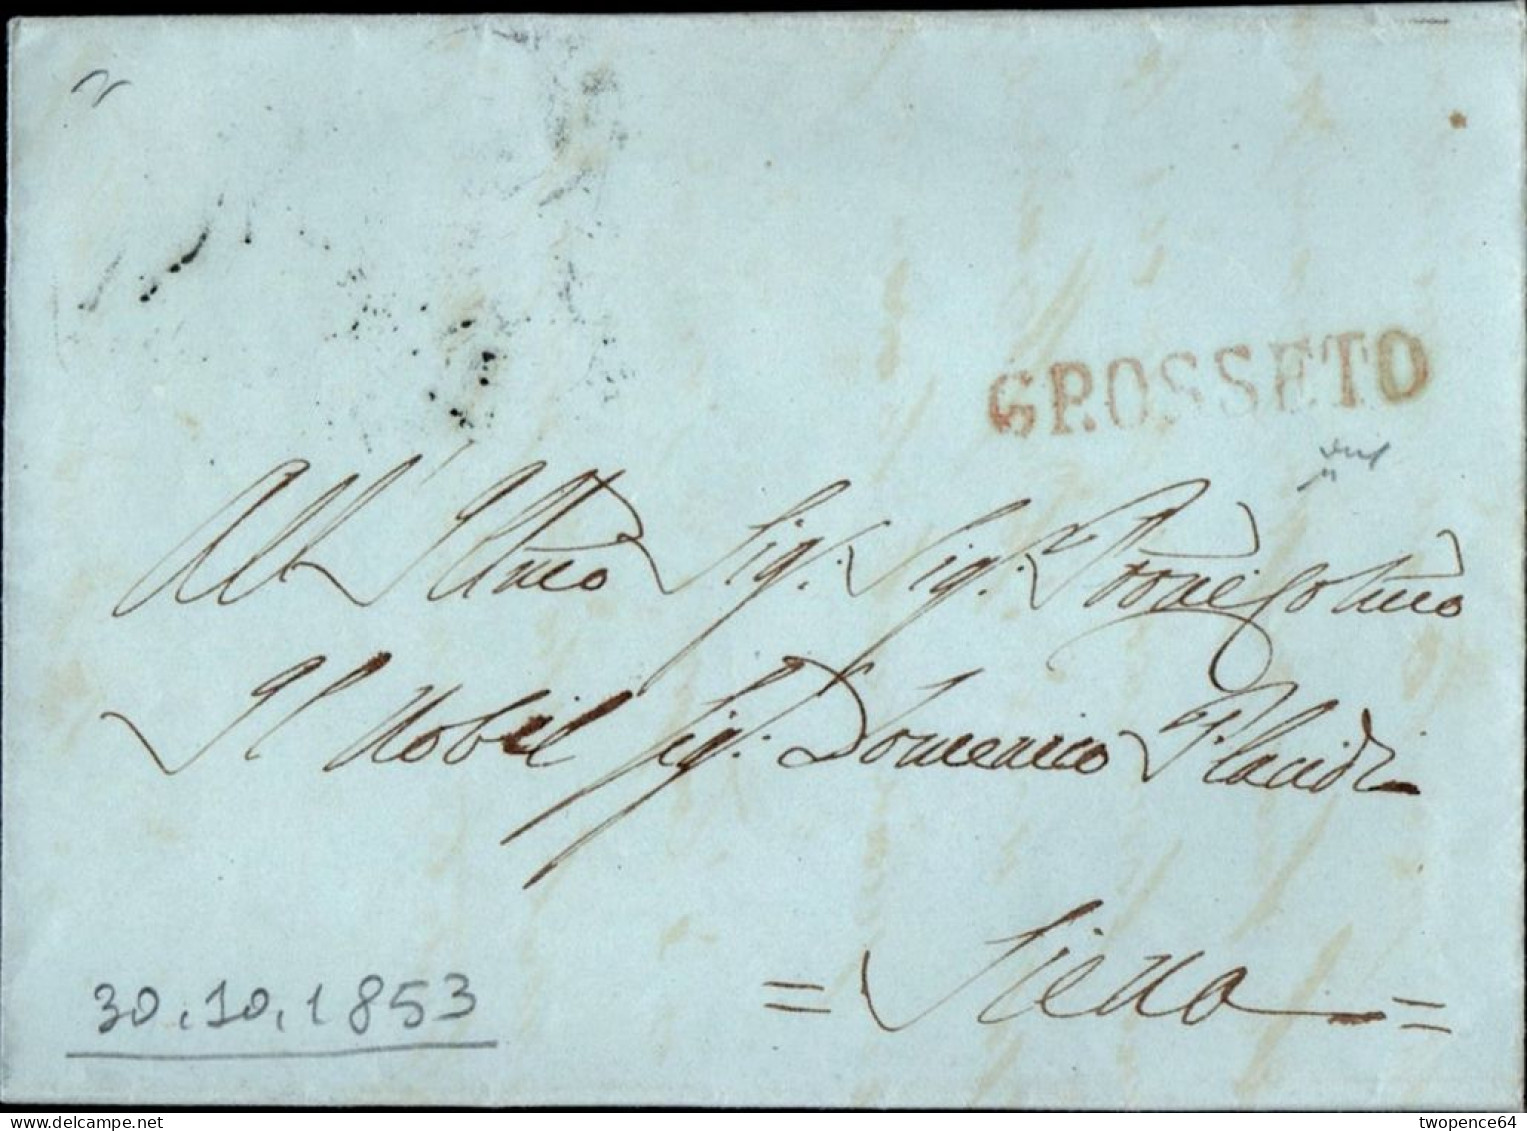 GROSSETO
All' Illmo Sig. Sig. Prone Colmo
Il Nobil Sig. Domenico Placidi
= Siena =
30.10.1853
twopence64